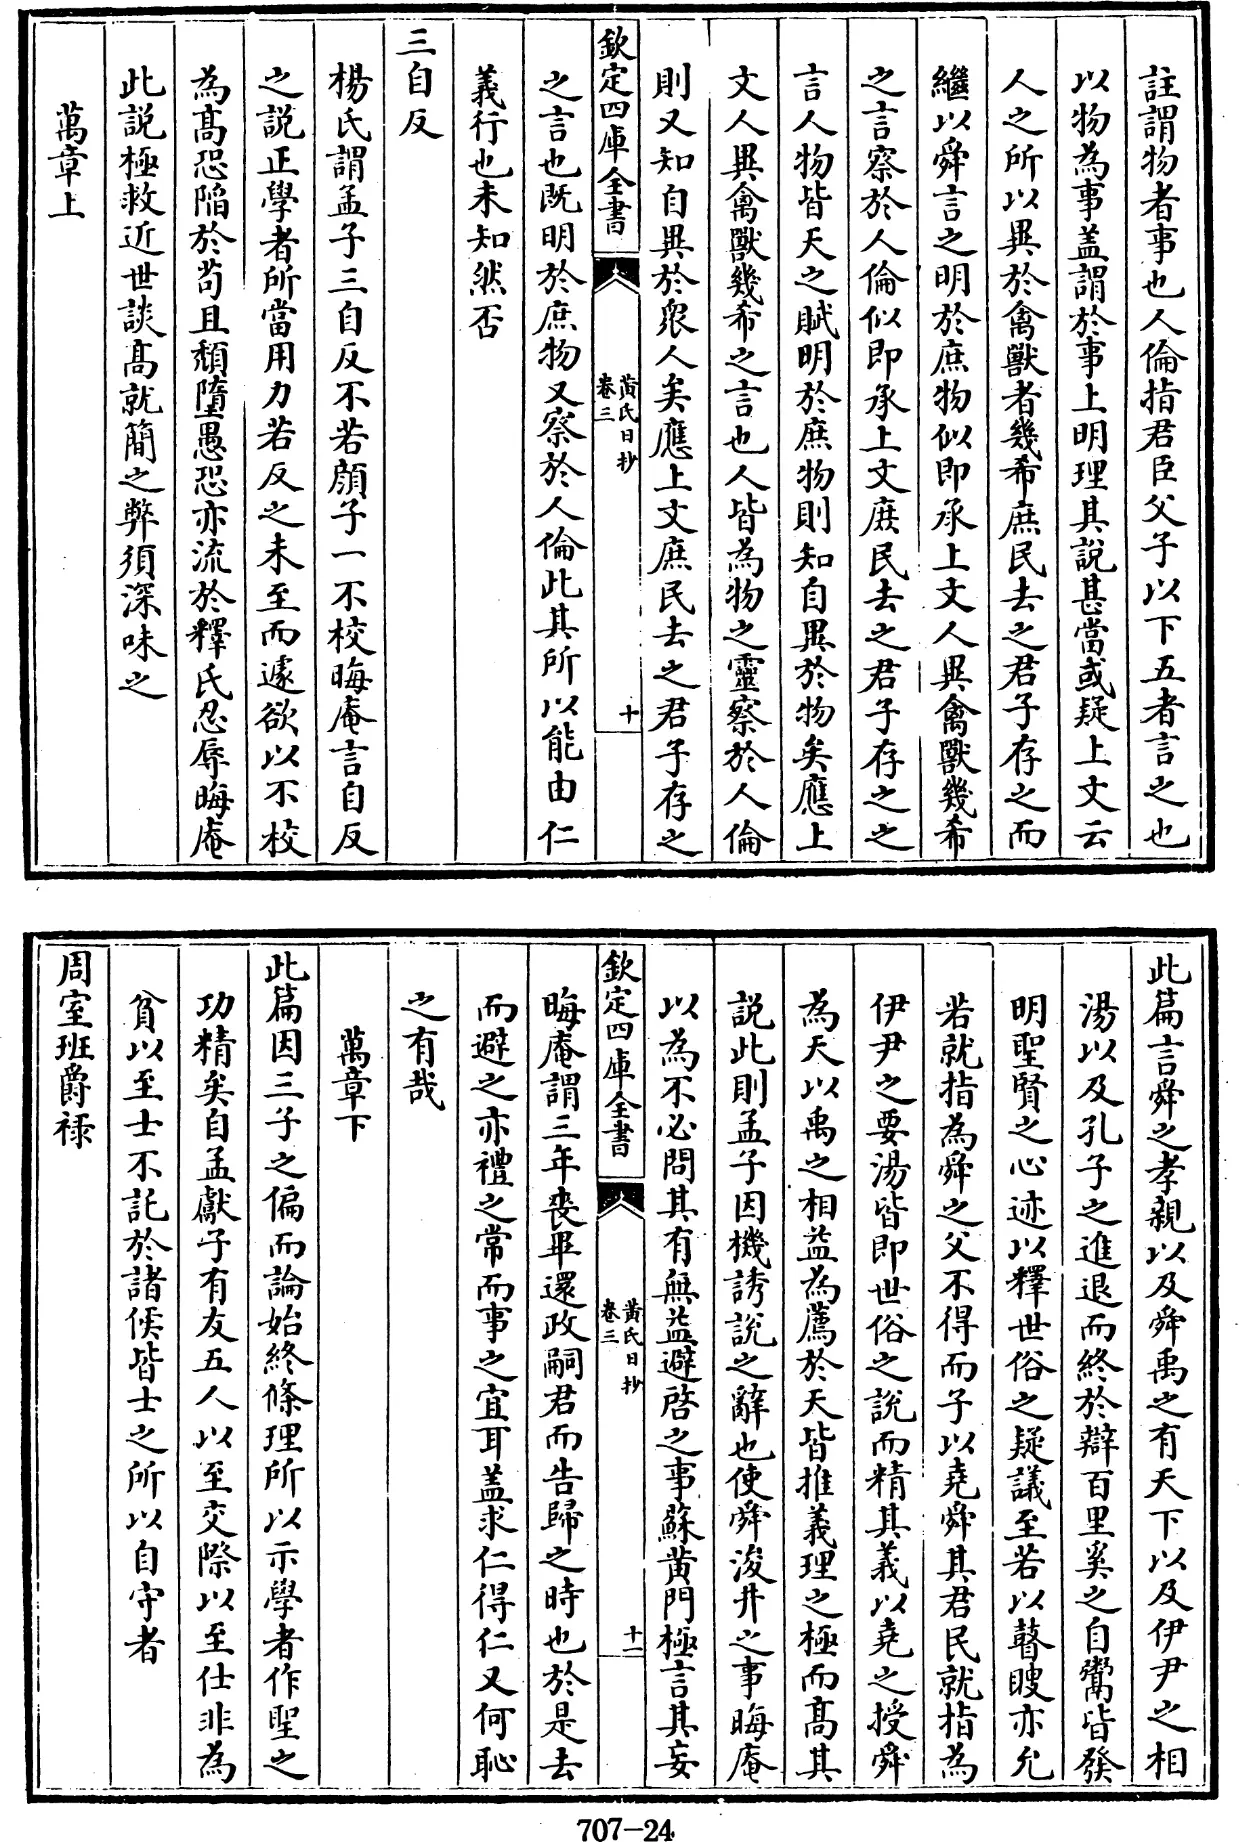 註謂物者事也人倫指君臣父子以下五者言之也
以物為事盖謂於事上明理其説甚當或疑上文云
人之所以異於禽獸者幾希庶民去之君子存之而
繼以舜言之明於庶物似即承上文人異禽獸幾希
之言察於人倫似即承上文庶民去之君子存之之
言人物皆天之賦明於庶物則知自異於物矣應上
文人異禽獸幾希之言也人皆為物之靈察於人倫
則又知自異於衆人矣應上文庶民去之君子存之
欽定四庫全書
黄氏日抄
卷三
十
之言也既明於庶物又察於人倫此其所以能由仁
義行也未知然否
三自反
楊氏謂孟子三自反不若顔子一不校晦庵言自反
之説正學者所當用力若反之未至而遽欲以不校
為髙恐䧟於苟且頽墮愚恐亦流於釋氏忍辱晦庵
此説極救近世談髙就簡之弊須深味之
萬章上
此篇言舜之孝親以及舜禹之有天下以及伊尹之相
湯以及孔子之進退而終於辯百里奚之自鬻皆發
明聖賢之心迹以釋世俗之疑議至若以瞽瞍亦允
若就指為舜之父不得而子以堯舜其君民就指為
伊尹之要湯皆即世俗之説而精其義以堯之授舜
為天以禹之相益為薦於天皆推義理之極而髙其
説此則孟子因機誘説之辭也使舜浚井之事晦庵
以為不必問其有無益避啓之事蘇黄門極言其妄
欽定四庫全書
黄氏日抄
卷三
十一
晦庵謂三年喪畢還政嗣君而告歸之時也於是去
而避之亦禮之常而事之宜耳盖求仁得仁又何恥
之有哉
萬章下
此篇因三子之偏而論始終條理所以示學者作聖之
功精矣自孟獻子有友五人以至交際以至仕非為
貧以至士不託於諸侯皆士之所以自守者
周室班爵禄
707-24